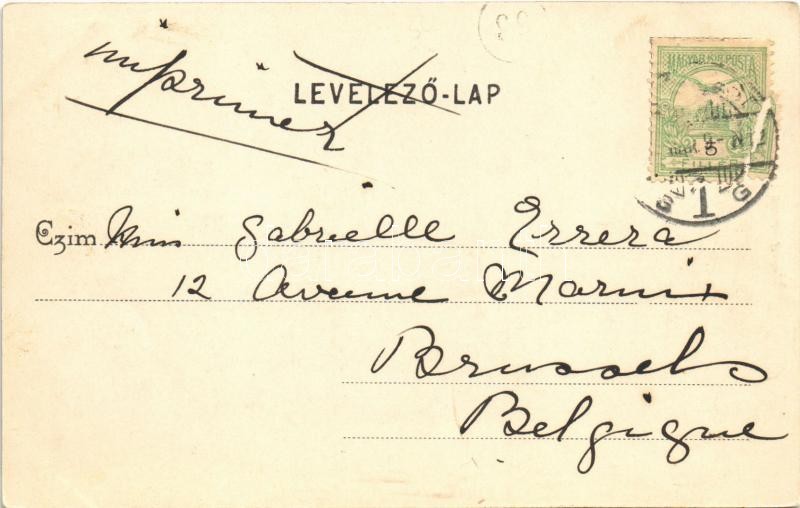 imprimer
LEVELEZŐ-LAP
MAGYAR KIR. POSTA
5
FILLÉR
1
Czim Miss Gabrielle Errera
12 Avenue Marnix
Brussels
Belgique